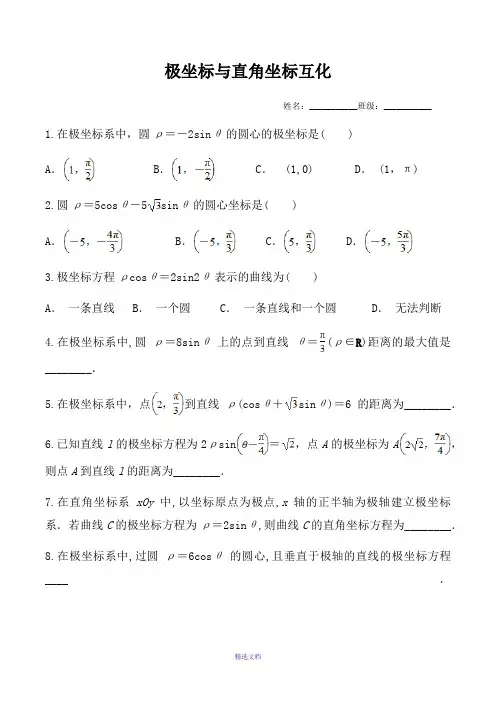 极坐标与直角坐标互化
姓名:__________班级:__________
1.在极坐标系中，圆 ρ=-2sinθ的圆心的极坐标是( )
A. (1, π/2) B. (1, -π/2) C. (1,0) D. (1, π)
2.圆ρ=5cosθ-5√3sinθ的圆心坐标是( )
A. (-5, -4π/3) B. (-5, π/3) C. (5, π/3) D. (-5, 5π/3)
3.极坐标方程ρcosθ=2sin2θ表示的曲线为( )
A. 一条直线 B. 一个圆 C. 一条直线和一个圆 D. 无法判断
4.在极坐标系中,圆 ρ=8sinθ 上的点到直线 θ=π/3(ρ∈R)距离的最大值是
________.
5.在极坐标系中，点(2, π/3)到直线 ρ(cosθ+√3sinθ)=6 的距离为________.
6.已知直线l的极坐标方程为2ρsin(θ-π/4)=√2，点A的极坐标为A(2√2, 7π/4)，
则点A到直线l的距离为________.
7.在直角坐标系 xOy 中,以坐标原点为极点,x 轴的正半轴为极轴建立极坐标
系.若曲线C的极坐标方程为ρ=2sinθ,则曲线C的直角坐标方程为________.
8.在极坐标系中,过圆 ρ=6cosθ 的圆心,且垂直于极轴的直线的极坐标方程
____ .
精选文档